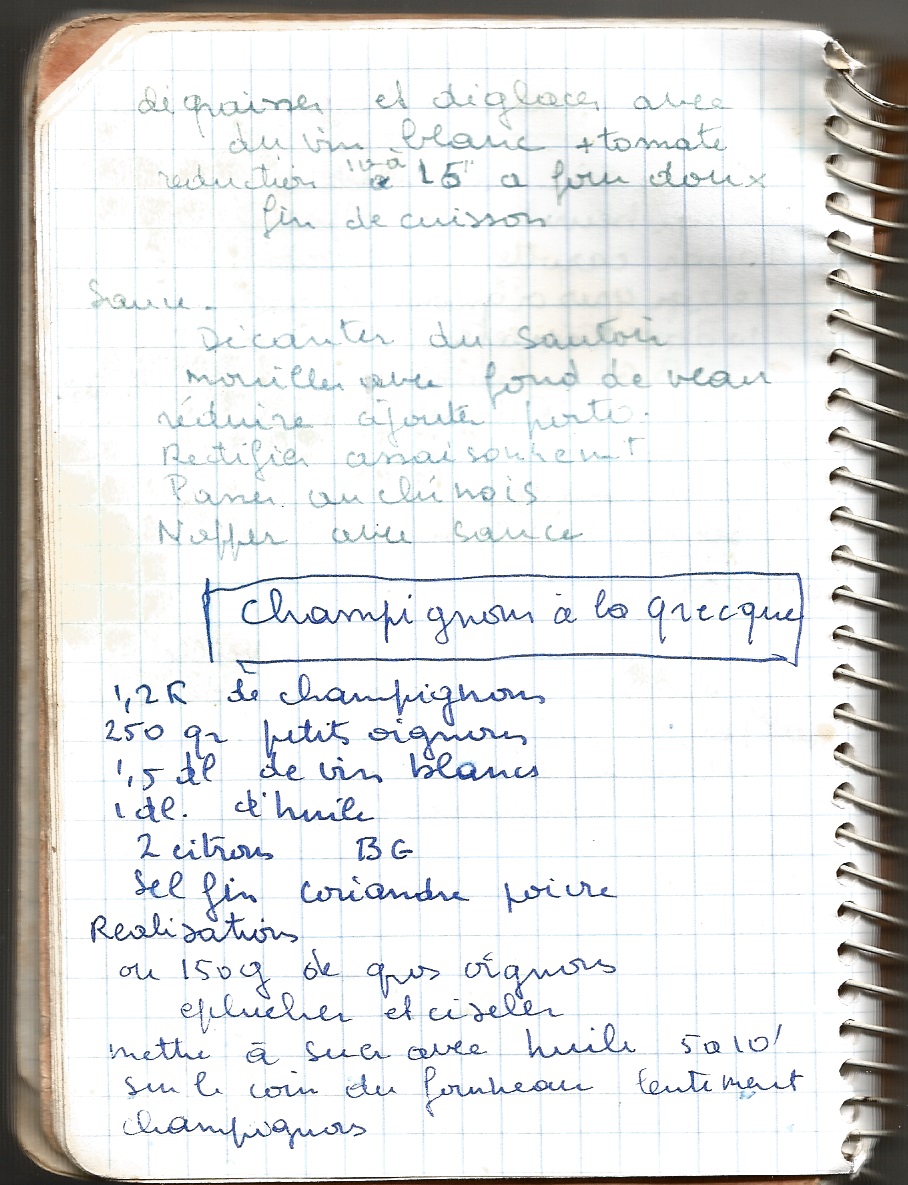 dégraisser et déglacer avec
du vin blanc + tomate
reduction 10 à 15" a four doux
fin de cuisson
Sauce.
Décanter du sautoir
mouiller avec fond de veau
réduire ajouter porto.
Rectifier assaisonnemt
Passer au chinois
Napper avec sauce
Champignons à la grecque
1,2 K de champignons
250 gr petits oignons
1,5 dl de vin blancs
1 dl. d'huile
2 citrons BG
Sel fin coriandre poivre
Realisations
ou 150g de gros oignons
eplucher et ciseler
mettre à suer avec huile 5 a 10'
sur le coin du fourneau lentement
champignons